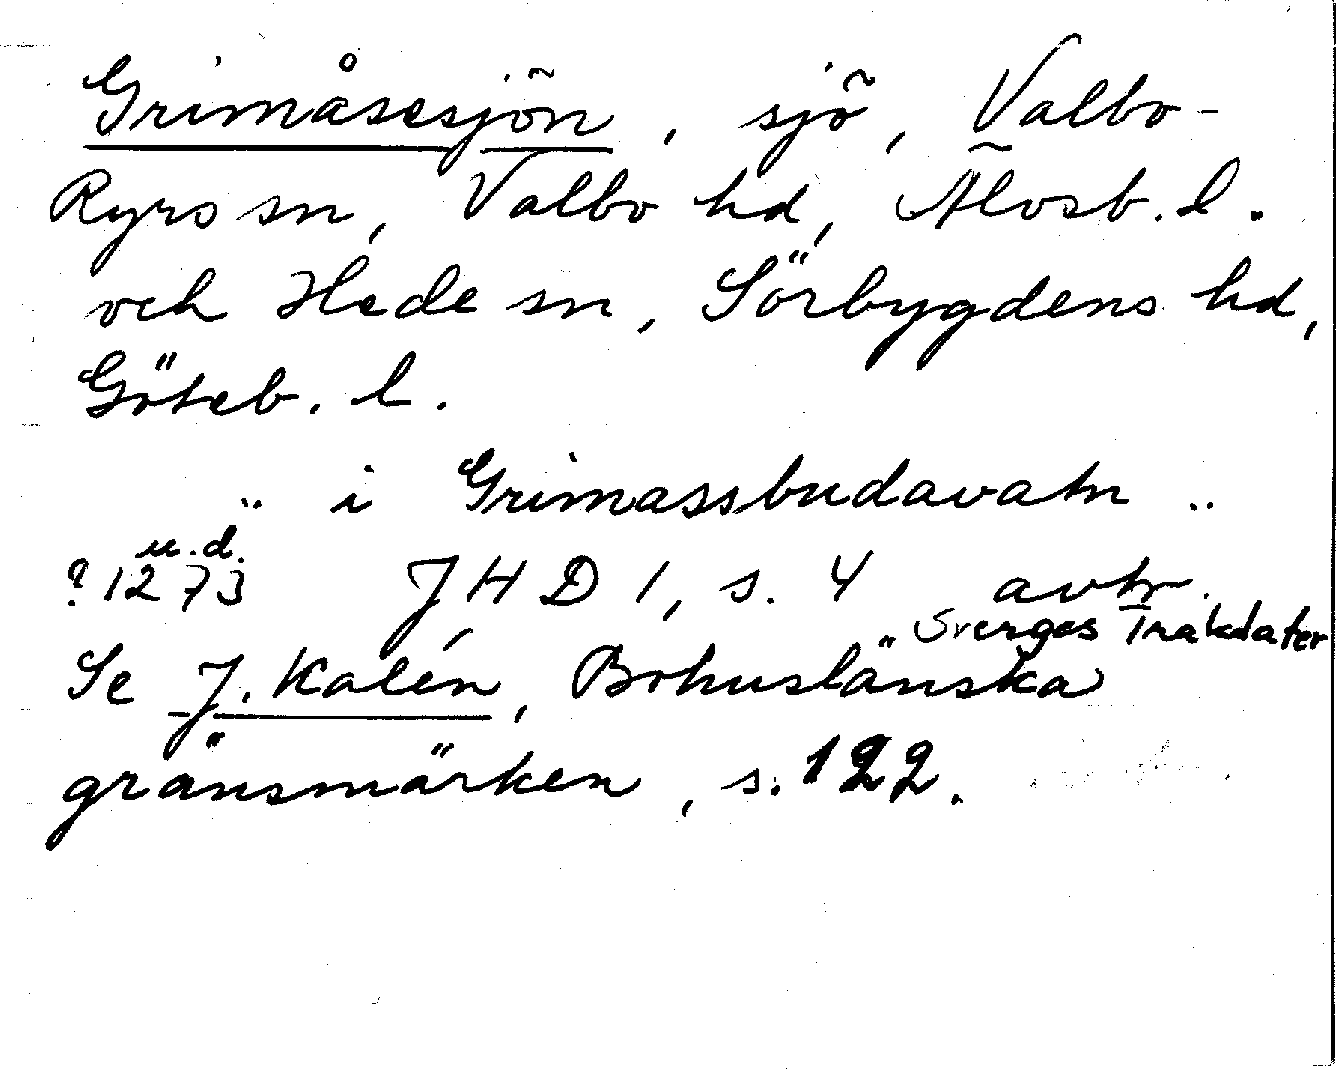 Grimåsesjön, sjö, Valbo-
Ryrs sn, Valbo hd, Älvsb. l.
och Hede sn, Sörbygdens hd,
Göteb. l.
.. i Grimassbudavatn ..
u.d.
?1273 JHD 1, s. 4 avtr.
Sverges Traktater
Se J. Kalén, Bohuslänska
gränsmärken, s. 122.